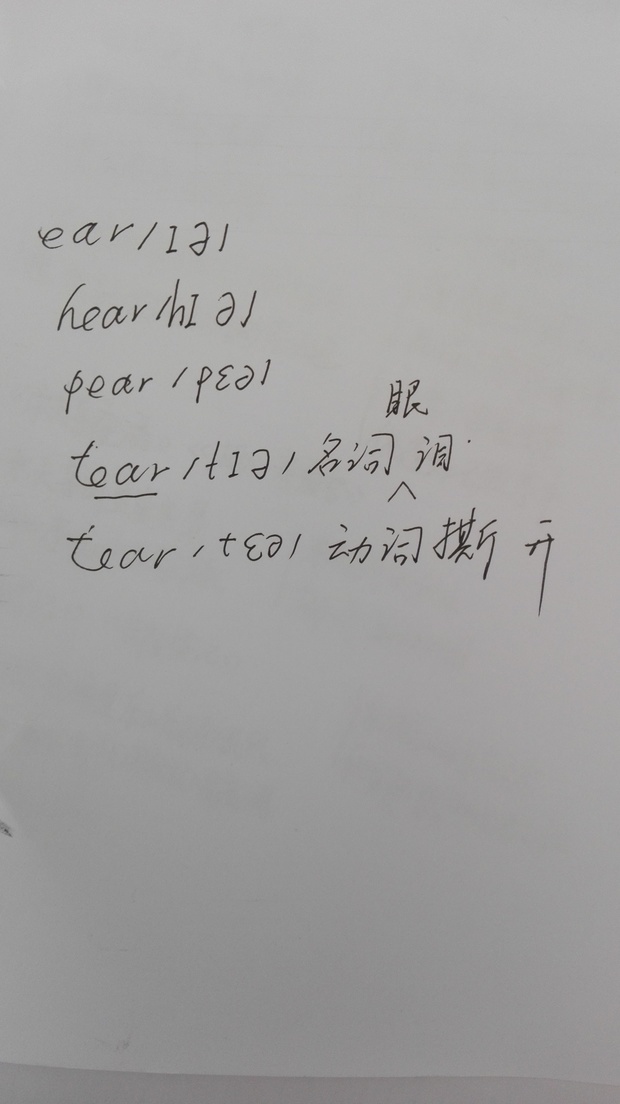 ear /ɪə/
hear /hɪə/
pear /pɛə/
眼
tear /tɪə/ 名词 泪
tear /tɛə/ 动词 撕开